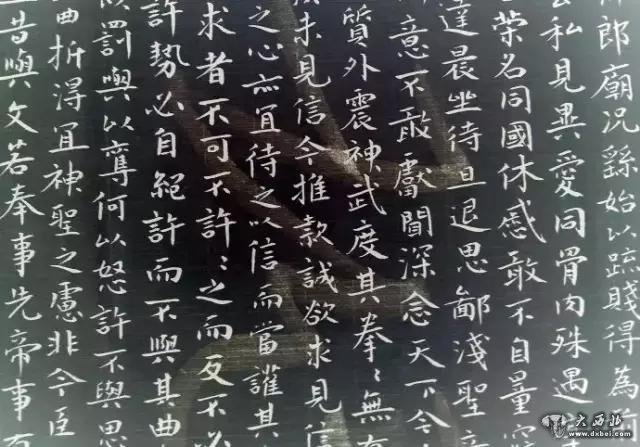 郎廟況繇始以疏賤得為
公私見異愛同骨肉殊遇
榮名同國休慼敢不自量
達晨坐待旦退思鄙淺聖
意不敢獻聞深念天下今
質外震神武度其拳〻無
未見信今推款誠欲求見信
之心亦宜待之以信而當護其
求者不可不許〻之而反不必
許勢必自絕許而不與其曲
罰與以奪何以怒許不與思
曲折得宜神聖之慮非今臣
昔與文若奉事先帝事
大西北
www.dxbei.com